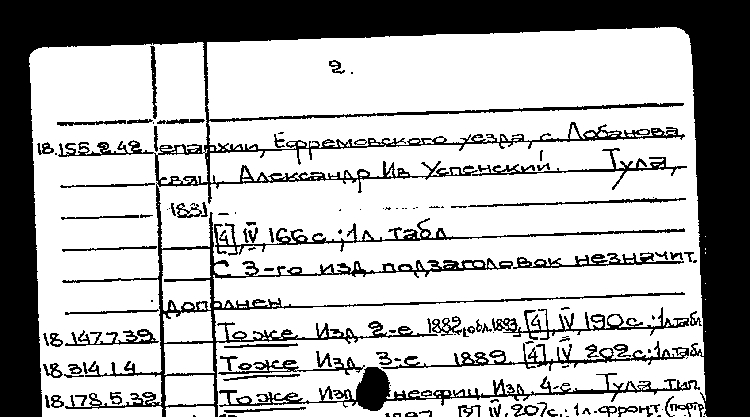 2.
18.155.2.42. епархии, Ефремовского уезда, с. Лобанова,
свящ. Александр Ив Успенский. Тула,
1881
[4], IV, 166 с.; 1 л. табл.
С 3-го изд. подзаголовок незначит.
дополнен.
18.147.7.39 То же. Изд. 2-е. 1882, обл. 1883. [4], IV, 190 с.; 1 л. табл
18.314.1.4 То же. Изд. 3-е. 1889. [4], IV, 202 с.; 1 л. табл
18.178.5.39 То же. Изд. неофиц. Изд. 4-е. Тула, тип.
IV, 207 с.; 1 л. фронт. (портр